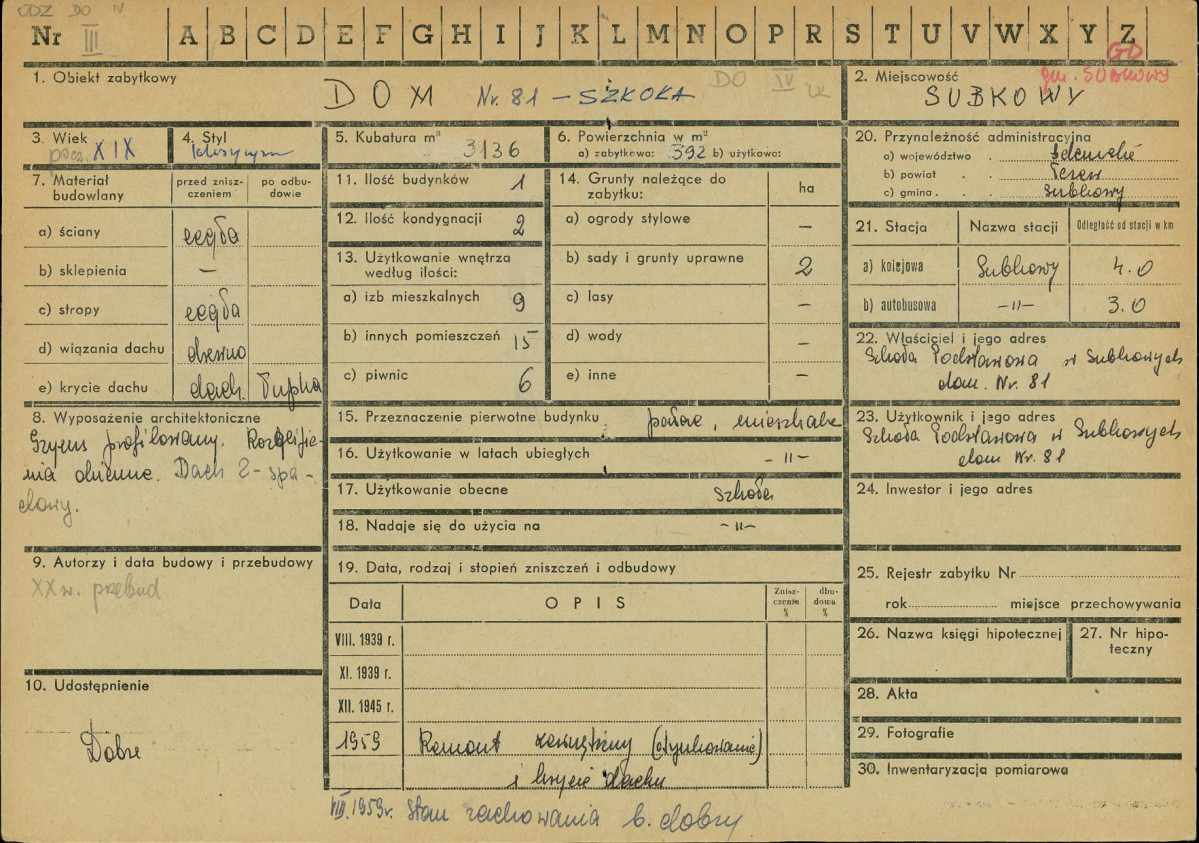 ODZ DO IV
Nr III A B C D E F G H I J K L M N O P R S T U V W X Y Z
GD
gm. SUBKOWY
1. Obiekt zabytkowy
DOM Nr. 81 – SZKOŁA
DO IV
2. Miejscowość
SUBKOWY
3. Wiek
pocz. XIX
4. Styl
klasycyzm
5. Kubatura m³
3136
6. Powierzchnia w m²
a) zabytkowa: 392 b) użytkowa:
7. Materiał budowlany
przed znisz-
czeniem
po odbu-
dowie
a) ściany cegła
b) sklepienia –
c) stropy cegła
d) wiązania dachu drewno
e) krycie dachu dach. łupka
8. Wyposażenie architektoniczne
Gzyms profilowany.
okienne. Dach 2-spa-
dowy.
9. Autorzy i data budowy i przebudowy
XX w. przebud
10. Udostępnienie
Dobre
11. Ilość budynków 1
12. Ilość kondygnacji 2
13. Użytkowanie wnętrza
według ilości:
a) izb mieszkalnych 9
b) innych pomieszczeń 15
c) piwnic 6
14. Grunty należące do
zabytku:
ha
a) ogrody stylowe –
b) sady i grunty uprawne 2
c) lasy –
d) wody –
e) inne –
15. Przeznaczenie pierwotne budynku , mieszkalne
16. Użytkowanie w latach ubiegłych -"-
17. Użytkowanie obecne szkoła
18. Nadaje się do użycia na -"-
19. Data, rodzaj i stopień zniszczeń i odbudowy
Data
OPIS
Znisz-
czenie
%
dbu-
dowa
%
VIII. 1939 r.
XI. 1939 r.
XII. 1945 r.
1959 Remont zewnętrzny (otynkowanie)
i krycie dachu
VIII. 1959r. Stan zachowania b. dobry
20. Przynależność administracyjna
a) województwo . Gdańskie
b) powiat . . Tczew
c) gmina . . Subkowy
21. Stacja
Nazwa stacji
Odległość od stacji w km
a) kolejowa Subkowy 4.0
b) autobusowa -"- 3.0
22. Właściciel i jego adres
Szkoła Podstawowa w Subkowych
dom. Nr. 81
23. Użytkownik i jego adres
Szkoła Podstawowa w Subkowych
dom Nr. 81
24. Inwestor i jego adres
25. Rejestr zabytku Nr
rok miejsce przechowywania
26. Nazwa księgi hipotecznej
27. Nr hipo-
teczny
28. Akta
29. Fotografie
30. Inwentaryzacja pomiarowa